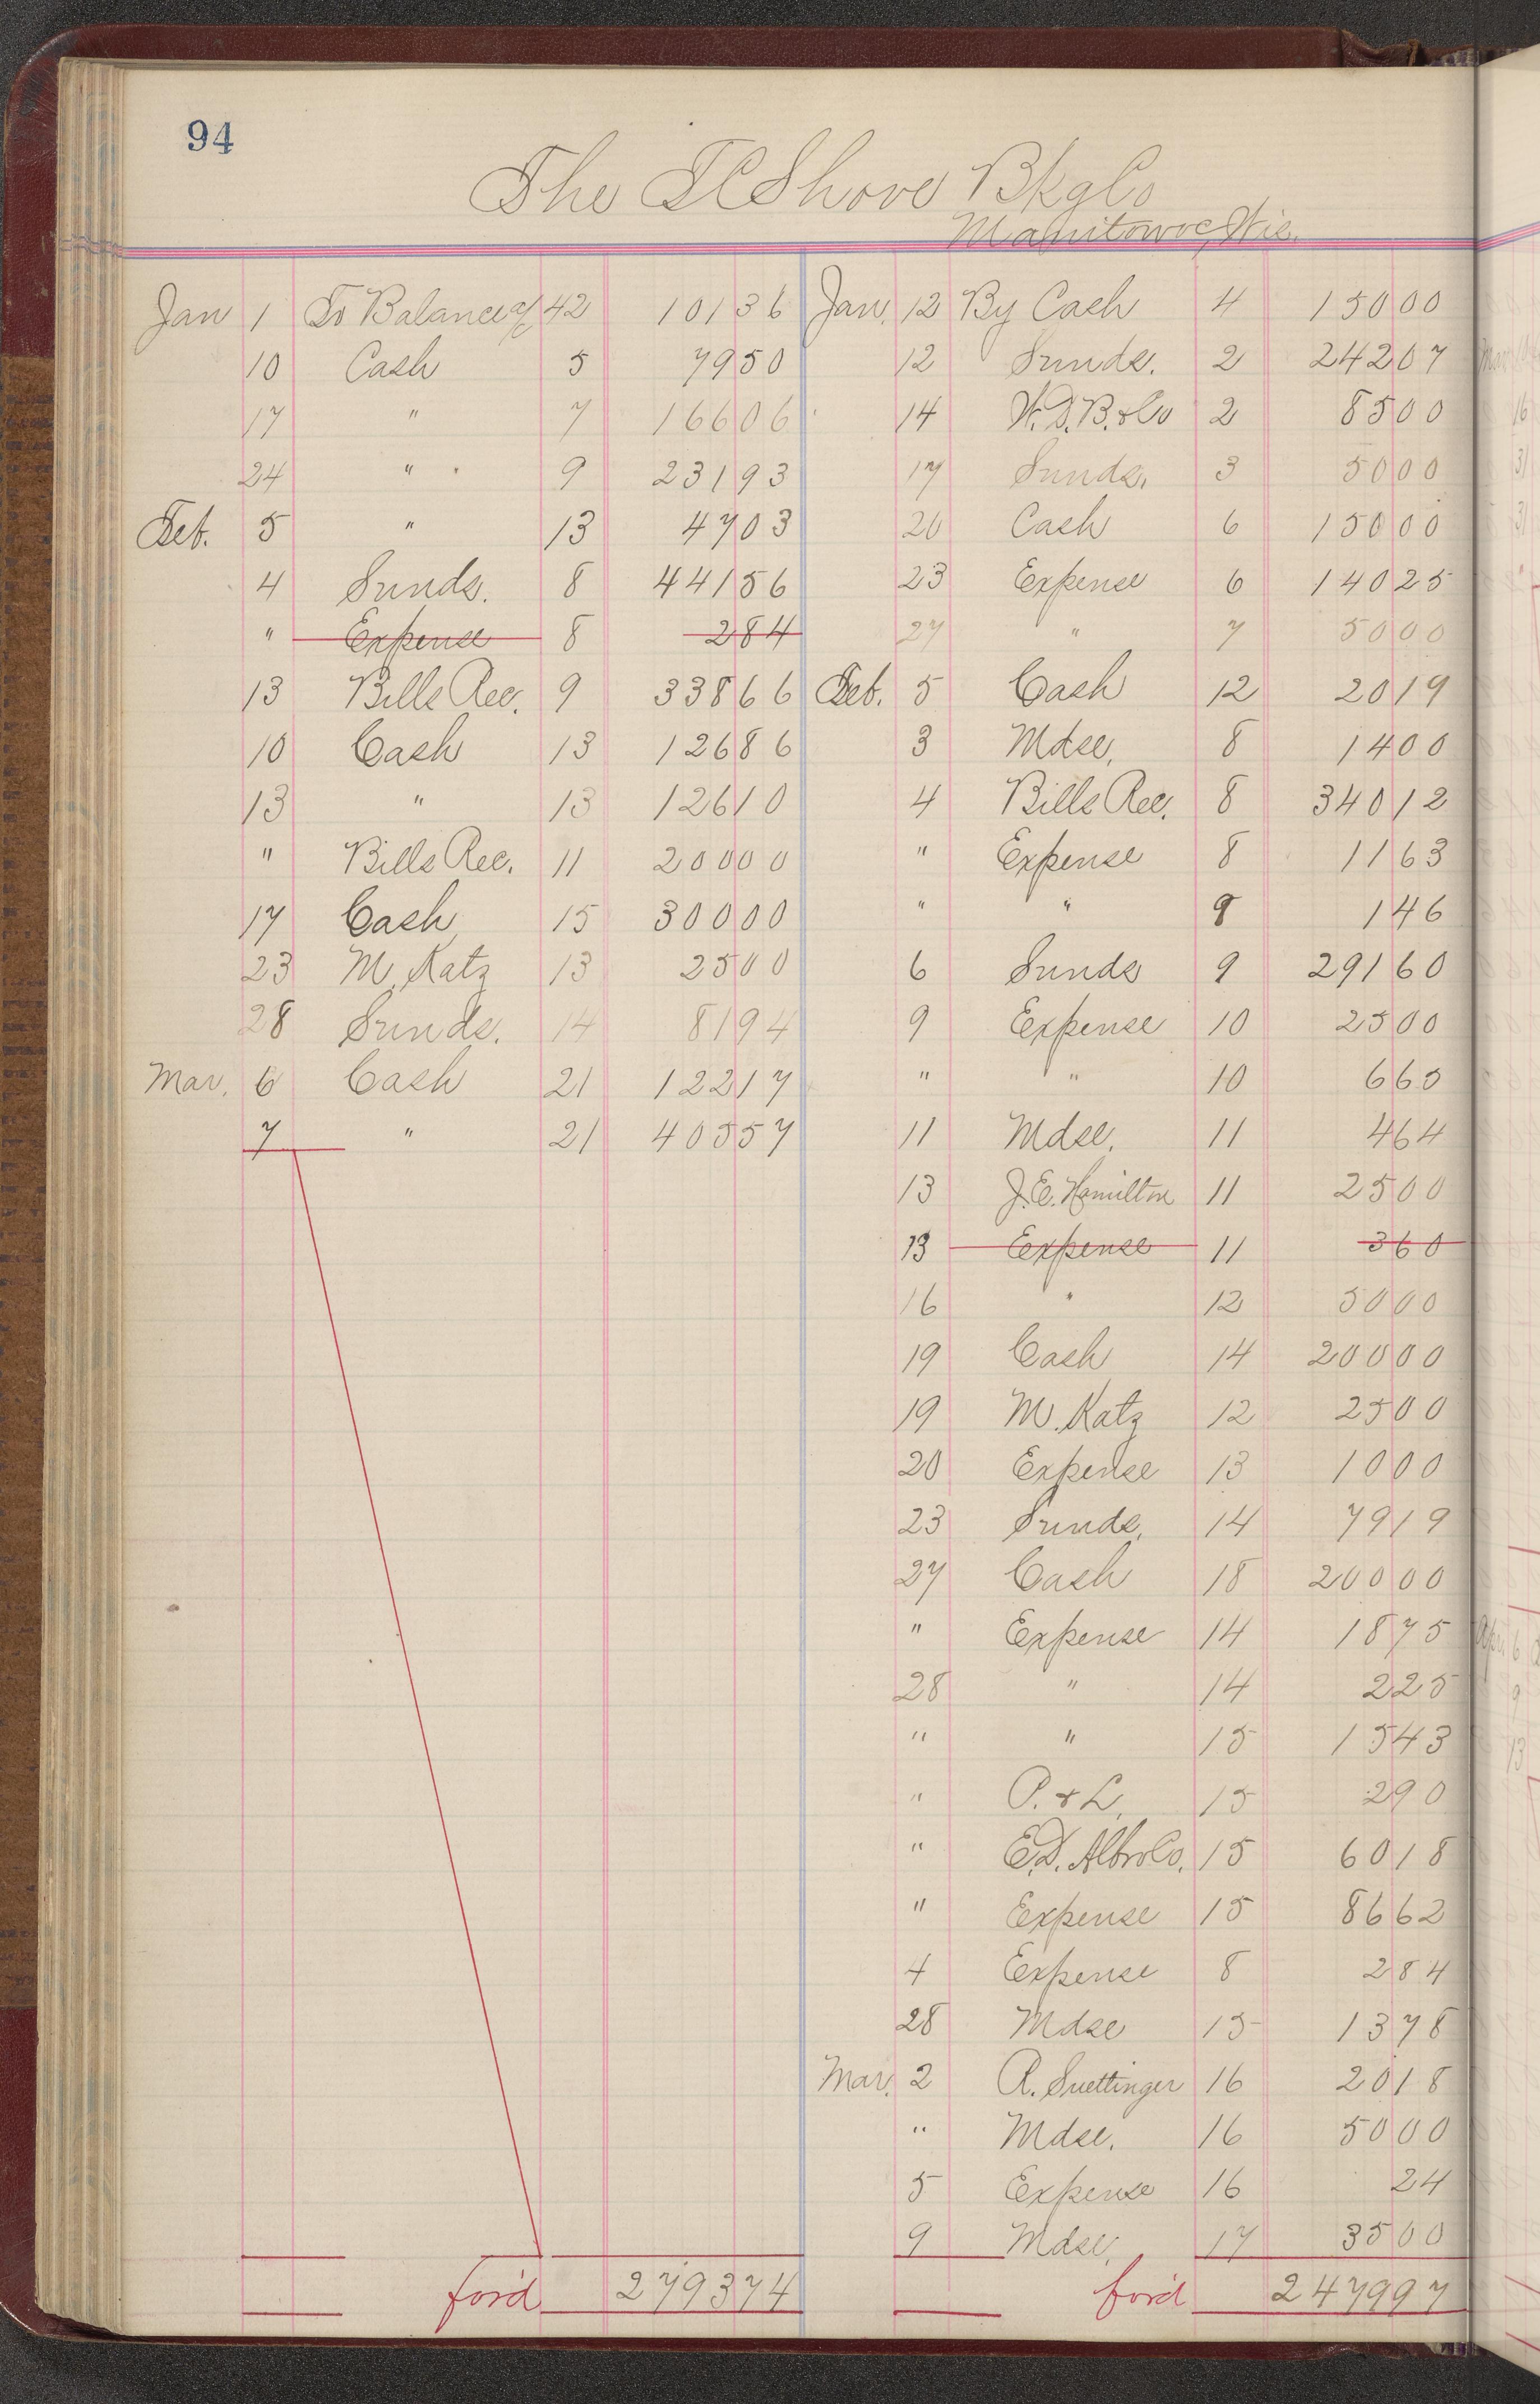 94
The T C Shove Bkg Co
Manitowoc, Wis.
Jan 1 To Balance a/c 42 101 36
10 Cash 5 79 50
17 " 7 166 06
24 " 9 231 93
Feb. 5 " 13 47 03
4 Sunds. 8 441 56
" Expense 8 2 84
13 Bills Rec. 9 338 66
10 Cash 13 126 86
13 " 13 126 10
" Bills Rec. 11 200 00
17 Cash 15 300 00
23 M. Katz 13 25 00
28 Sunds. 14 81 94
Mar. 6 Cash 21 122 17
7 " 21 405 57
for'd 2793 74
Jan. 12 By Cash 4 150 00
12 Sunds. 2 242 07
14 W.D.B. & Co 2 85 00
17 Sunds. 3 50 00
20 Cash 6 150 00
23 Expense 6 140 25
27 " 7 50 00
Feb. 5 Cash 12 20 19
3 Mdse. 8 14 00
4 Bills Rec. 8 340 12
" Expense 8 11 63
" " 9 1 46
6 Sunds 9 291 60
9 Expense 10 25 00
" " 10 6 65
11 Mdse. 11 4 64
13 J.E. Hamilton 11 25 00
13 Expense 11 3 60
16 " 12 50 00
19 Cash 14 200 00
19 M. Katz 12 25 00
20 Expense 13 10 00
23 Sunds. 14 79 19
27 Cash 18 200 00
" Expense 14 18 75
28 " 14 2 25
" " 15 15 43
" P. & L. 15 2 90
" E.D. Albro Co. 15 60 18
" Expense 15 86 62
4 Expense 8 2 84
28 Mdse 15 13 78
Mar. 2 R. Suettinger 16 20 18
" Mdse. 16 50 00
5 Expense 16 24
9 Mdse. 17 35 00
for'd 2479 97